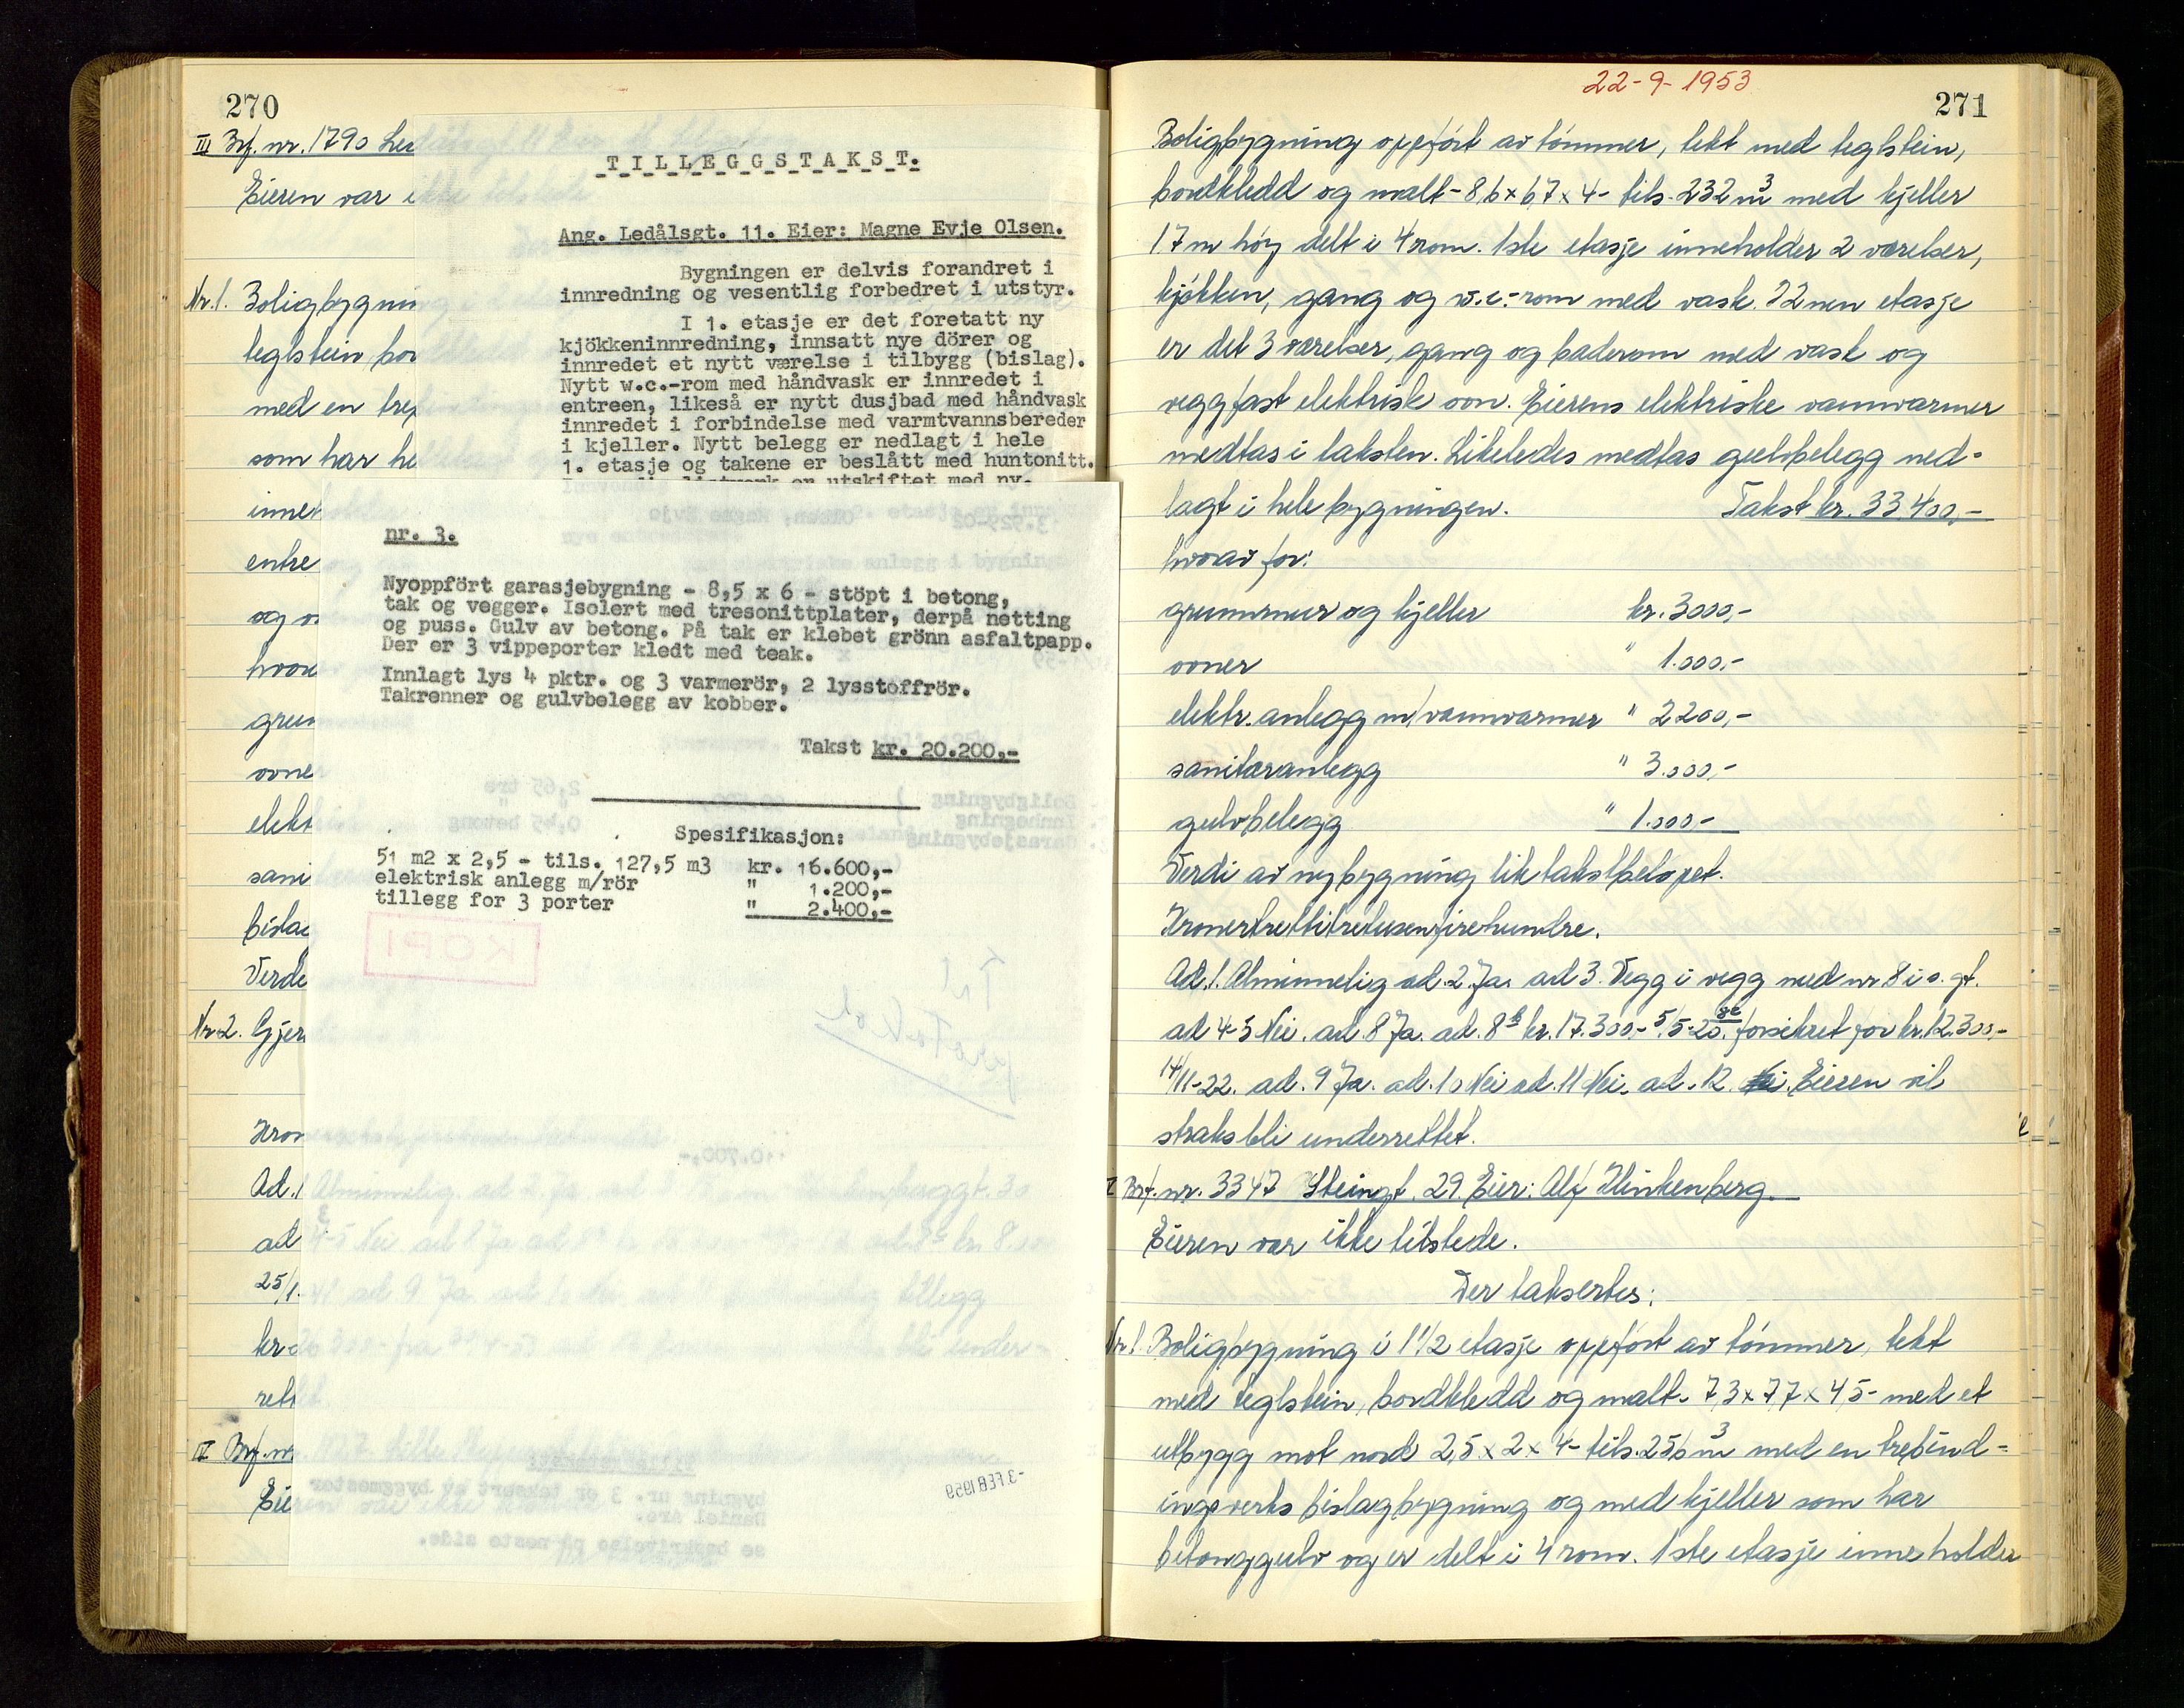 270
III Brf. nr. 1790 Led
Eieren var i
Nr. 1. Boligbygnin
teglstein bor
med en trep
som har he
inne
entre
og
hvor
grun
ovne
elekt
sani
bislag
Verde
Nr. 2. Gjer
Kron
Ad. 1 Alminnelig. ad 2 Ja ad
ad 4-5 Nei ad 8 Ja ad
25/1. 41 ad 9 Ja
kr
rett
IV Brf. nr
Eie
TILLEGGSTAKST.
Ang. Ledålsgt. 11. Eier: Magne Evje Olsen.
Bygningen er delvis forandret i
innredning og vesentlig forbedret i utstyr.
I 1. etasje er det foretatt ny
kjökkeninnredning, innsatt nye dörer og
innredet et nytt værelse i tilbygg (bislag).
Nytt w.c.-rom med håndvask er innredet i
entreen, likeså er nytt dusjbad med håndvask
innredet i forbindelse med varmtvannsbereder
i kjeller. Nytt belegg er nedlagt i hele
1. etasje og takene er beslått med huntonitt.
er utskiftet med ny.
nr. 3.
Nyoppfört garasjebygning - 8,5 x 6 - stöpt i betong,
tak og vegger. Isolert med tresonittplater, derpå netting
og puss. Gulv av betong. På tak er klebet grönn asfaltpapp.
Der er 3 vippeporter kledt med teak.
Innlagt lys 4 pktr. og 3 varmerör, 2 lysstoffrör.
Takrenner og gulvbelegg av kobber.
Takst kr. 20.200,-
Spesifikasjon:
51 m2 x 2,5 - tils. 127,5 m3 kr. 16.600,-
elektrisk anlegg m/rör " 1.200,-
tillegg for 3 porter " 2.400,-
KOPI
10.700,-
-3 FEB 1959
bygning nr. 3 er taksert av byggmester
Daniel Are.
se beskrivelse på neste side.
22-9-1953
271
Boligbygning oppført av tømmer, tekt med teglstein,
bordkledd og malt - 8,6 x 6,7 x 4 - tils. 232 m3 med kjeller
1.7 m høy delt i 4 rom. 1ste etasje inneholder 2 værelser,
kjøkken, gang og w.c.-rom med vask. I 2nen etasje
er det 3 værelser, gang og baderom med vask og
veggfast elektrisk ovn. Eierens elektriske vannvarmer
medtas i taksten. Likeledes medtas gulvbelegg ned-
lagt i hele bygningen. Takst kr. 33.400,-
hvorav for:
grunnmur og kjeller kr. 3000,-
ovner " 1.000,-
elektr. anlegg m/vannvarmer " 2200,-
sanitæranlegg " 3.000,-
gulvbelegg " 1.000,-
Verdi av nybygning lik takstbeløpet.
Kronertrettitretusenfirehundre.
Ad. 1. Alminnelig ad. 2. Ja. ad 3. Vegg i vegg med nr 8 i s. gt.
ad 4-5 Nei. ad. 8 Ja. ad. 8b kr. 17.300,- 5/5-20. forsikret for kr. 12.300,-
14/11-22. ad. 9 Ja. ad. 10 Nei ad. 11 Nei. ad. 12. Eieren vil
straks bli underrettet.
Brf. nr. 3347 Steingt. 29. Eier: Alf Klinkenberg.
Eieren var ikke tilstede.
Der taksertes:
Nr. 1. Boligbygning i 1 1/2 etasje oppført av tømmer, tekt
med teglstein, bordkledd og malt. 7,3 x 7,7 x 4,5 - med et
utbygg mot nord 2,5 x 2 x 4 - tils. 256 m3 med en trebind-
ingsverks bislagbygning og med kjeller som har
betonggulv og er delt i 4 rom. 1ste etasje inneholder